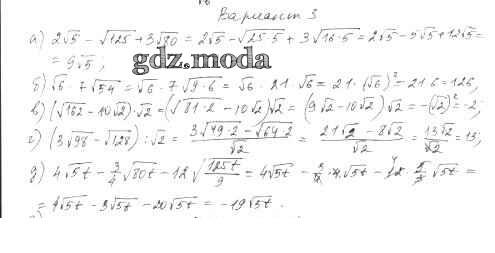 Вариант 3
а) 2√5 - √125 + 3√80 = 2√5 - √25·5 + 3√16·5 = 2√5 - 5√5 + 12√5 =
= 9√5;
gdz.moda
б) √6 · 7√54 = √6 · 7√9·6 = √6 · 21 √6 = 21 · (√6)² = 21·6 = 126,
в) (√162 - 10√2)·√2 = (√81·2 - 10√2)√2 = (9√2 - 10√2)√2 = -(√2)² = -2;
г) (3√98 - √128) : √2 = (3√49·2 - √64·2)/√2 = (21√2 - 8√2)/√2 = 13√2/√2 = 13;
д) 4√5t - 3/4 √80t - 12√(125t/9) = 4√5t - 3/4 · 4√5t - 12 · 5/3 √5t =
= 4√5t - 3√5t - 20√5t = -19√5t.